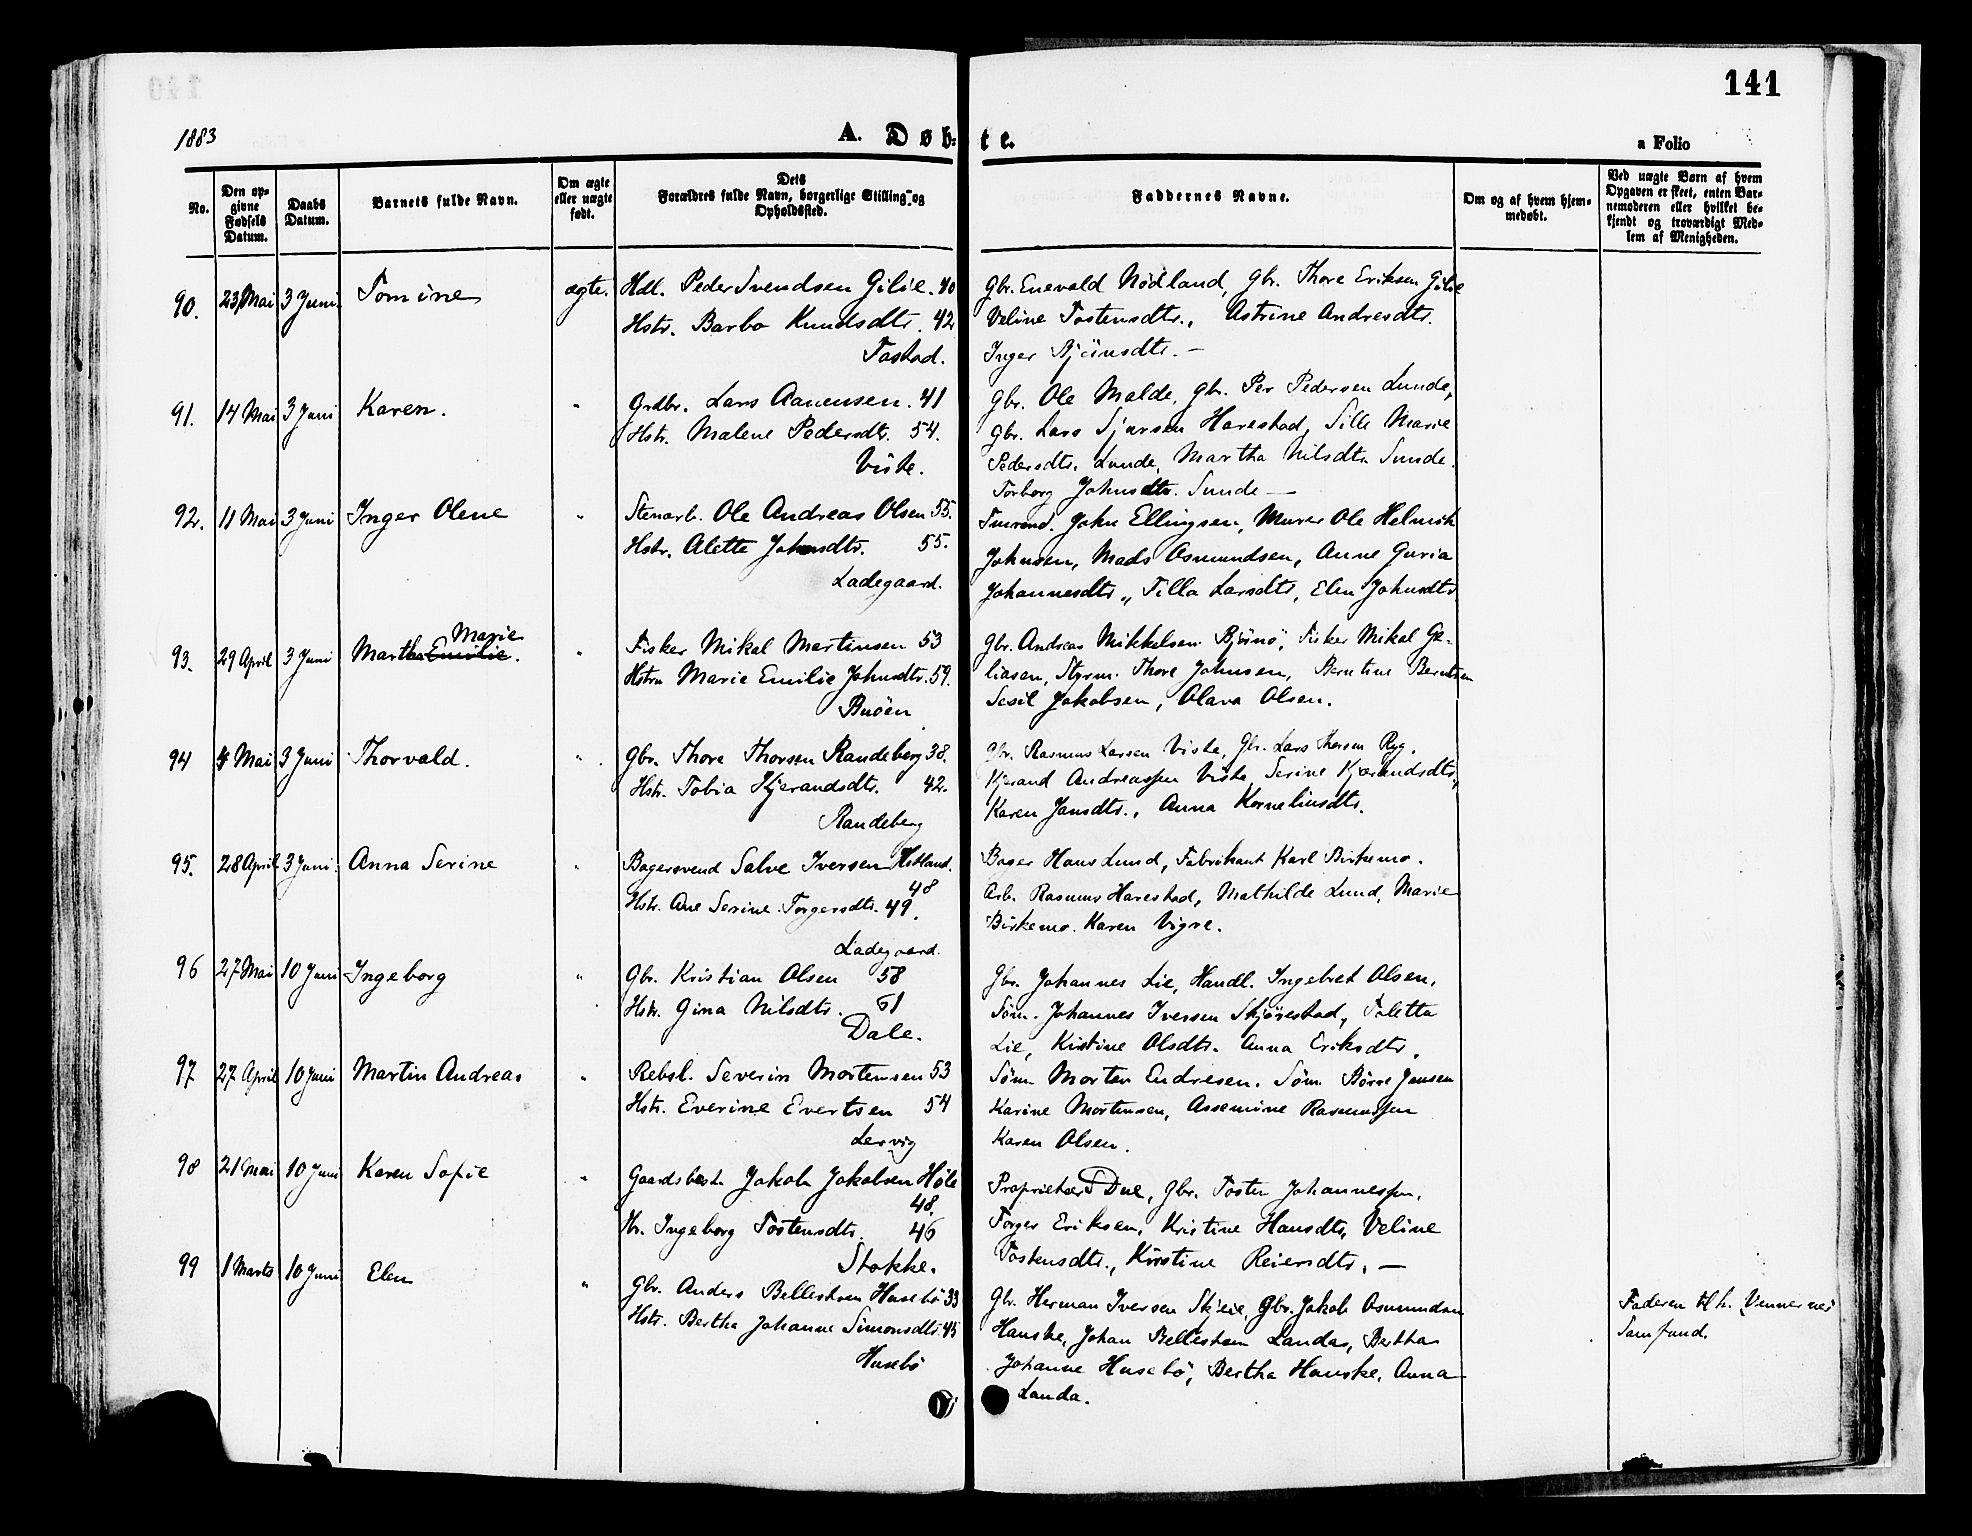 141
1883
A. Døbte.
a Folio
No.
Den opgivne Fødsels Datum.
Daabs Datum.
Barnets fulde Navn.
Om ægte eller uægte født.
Dets Forældres fulde Navn, borgerlige Stilling og Opholdssted.
Faddernes Navne.
Om og af hvem hjemmedøbt.
Ved uægte Børn af hvem Opgaven er skeet, enten Barnemoderen eller hvilket bekjendt og troværdigt Medlem af Menigheden.
90. 23 Mai 3 Juni Tomine ægte. Hdl. Peder Svendsen Gilje. 40
Hstr. Barbo Knudsdtr. 42
Tastad.
Gbr. Enevald Nödland, Gbr. Thore Eriksen Gilje
Veline Tostensdtr., Astrine Andresdtr.
Inger Bjönsdtr. —
91. 14 Mai 3 Juni Karen. " Grdbr. Lars Aanensen. 41
Hstr. Malene Pedersdtr. 54.
Viste.
Gbr. Ole Malde, Gbr. Per Pedersen Lunde,
Gbr. Lars Sjursen Harestad, Sille Marie
Pedersdtr. Lunde, Martha Nilsdtr. Sunde.
Torborg Johnsdtr. Sunde —
92. 11 Mai 3 Juni Inger Olene " Stenarb. Ole Andreas Olsen 55.
Hstr. Alette Johnsdtr. 55.
Ladegaard.
John Ellingsen, Murer Ole Helmik
Johnsen, Mads Osmundsen, Anne Guria
Johannesdtr., Tilla Larsdtr, Elen Johnsdtr
93. 29 April 3 Juni Martha Emilie. Marie " Fisker Mikal Martinsen 53
Hstru Marie Emilie Johnsdtr. 59.
Buöen
Gbr. Andreas Mikkelsen Bjönö, Fisker Mikal Ge-
liasen, Styrm. Thore Johnsen, Berntine Berntsen
Sesil Jakobsen, Olava Olsen.
94 4 Mai 3 Juni Thorvald. " Gbr. Thore Thorsen Randeberg 38.
Hstr. Tobia Kjerandsdtr. 42.
Randeberg
Gbr. Rasmus Larsen Viste, Gbr. Lars Thorsen Ryg.
Kjerand Andreassen Viste, Serine Kjerandsdtr,
Karen Jansdtr., Anna Korneliusdtr.
95. 28 April 3 Juni. Anna Serine " Bagersvend Salve Iversen Hetland.
48
Hstr. Ane Serine Torgersdtr. 49.
Ladegaard.
Bager Hans Lund, Fabrikant Karl Birkemo.
Arb. Rasmus Harestad, Mathilde Lund, Marie
Birkemo. Karen Vigre.
96 27 Mai 10 Juni Ingeborg " Gbr. Kristian Olsen 58
Hstr. Gina Nilsdtr. 61
Dale.
Gbr. Johannes Lie, Handl. Ingebret Olsen,
Söm. Johannes Iversen Skjörestad, Taletta
Lie, Kistine Olsdtr. Anna Eriksdtr.
97 27 April 10 Juni Martin Andreas " Rebsl. Severin Mortensen 53
Hstr. Everine Evertsen 54
Lervig
Söm. Morten Endresen. Söm. Börre Jensen
Karine Mortensen, Assemine Rasmussen
Karen Olsen.
98 21 Mai 10 Juni Karen Sofie " Gaardsbest. Jakob Jakobsen Høle
48.
Hr. Ingeborg Tostensdtr. 46
Stokke.
Proprietær Due, Gbr. Tosten Johannessen.
Torger Eriksen, Kristine Hansdtr, Veline
Tostensdtr., Kirstine Reiersdtr. —
99 1 Marts 10 Juni Elen " Gbr. Anders Bellestsen Husebö 33
Hstr. Bertha Johanne Simonsdtr. 45
Husebö
Gbr. Herman Iversen Skjeie, Gbr. Jakob Osmundsen
Hauske, Johan Bellestsen Landas, Bertha
Johanne Husebö, Bertha Hauske, Anna
Landa.
Faderen til h. Vennernes
Samfund.